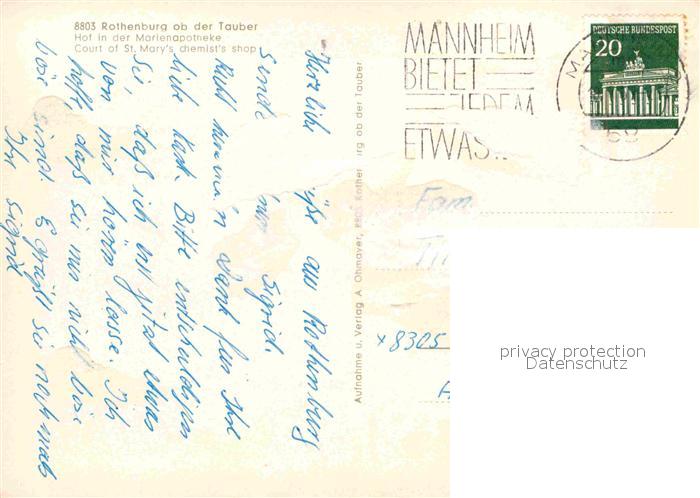 8803 Rothenburg ob der Tauber
Hof in der Marienapotheke
Court of St. Mary's chemist's shop
MANNHEIM
BIETET
JEDEM
ETWAS...
DEUTSCHE BUNDESPOST
20
MA
68
Herzliche Grüße aus Rothenburg
sendet Ihnen Sigrid.
Recht Dank für Ihre
liebe Karte. Bitte entschuldigen
Sie, daß ich erst jetzt etwas
von mir hören lasse. Ich
hoffe daß Sie mir nicht böse
böse sind. Es grüßt Sie nochmals
Ihre Sigrid
Aufnahme u. Verlag A. Ohmayer, 8803 Rothenburg ob der Tauber
Fam
x8305
privacy protection
Datenschutz